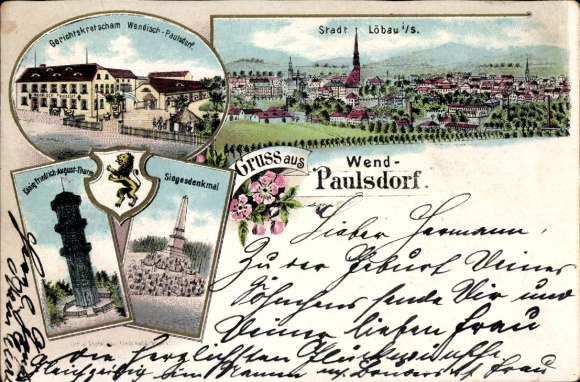 Gerichtskretscham Wendisch-Paulsdorf.
Stadt Löbau i/S.
König-Friedrich-August-Thurm
Siegesdenkmal
Gruss aus
Wend-
Paulsdorf.
Lieber Hermann,
Zu der Geburt Deines
Söhnchens sende Dir und
Deiner lieben Frau
die herzlichsten Glückwünsche
Gleichzeitig im Namen m. Frau